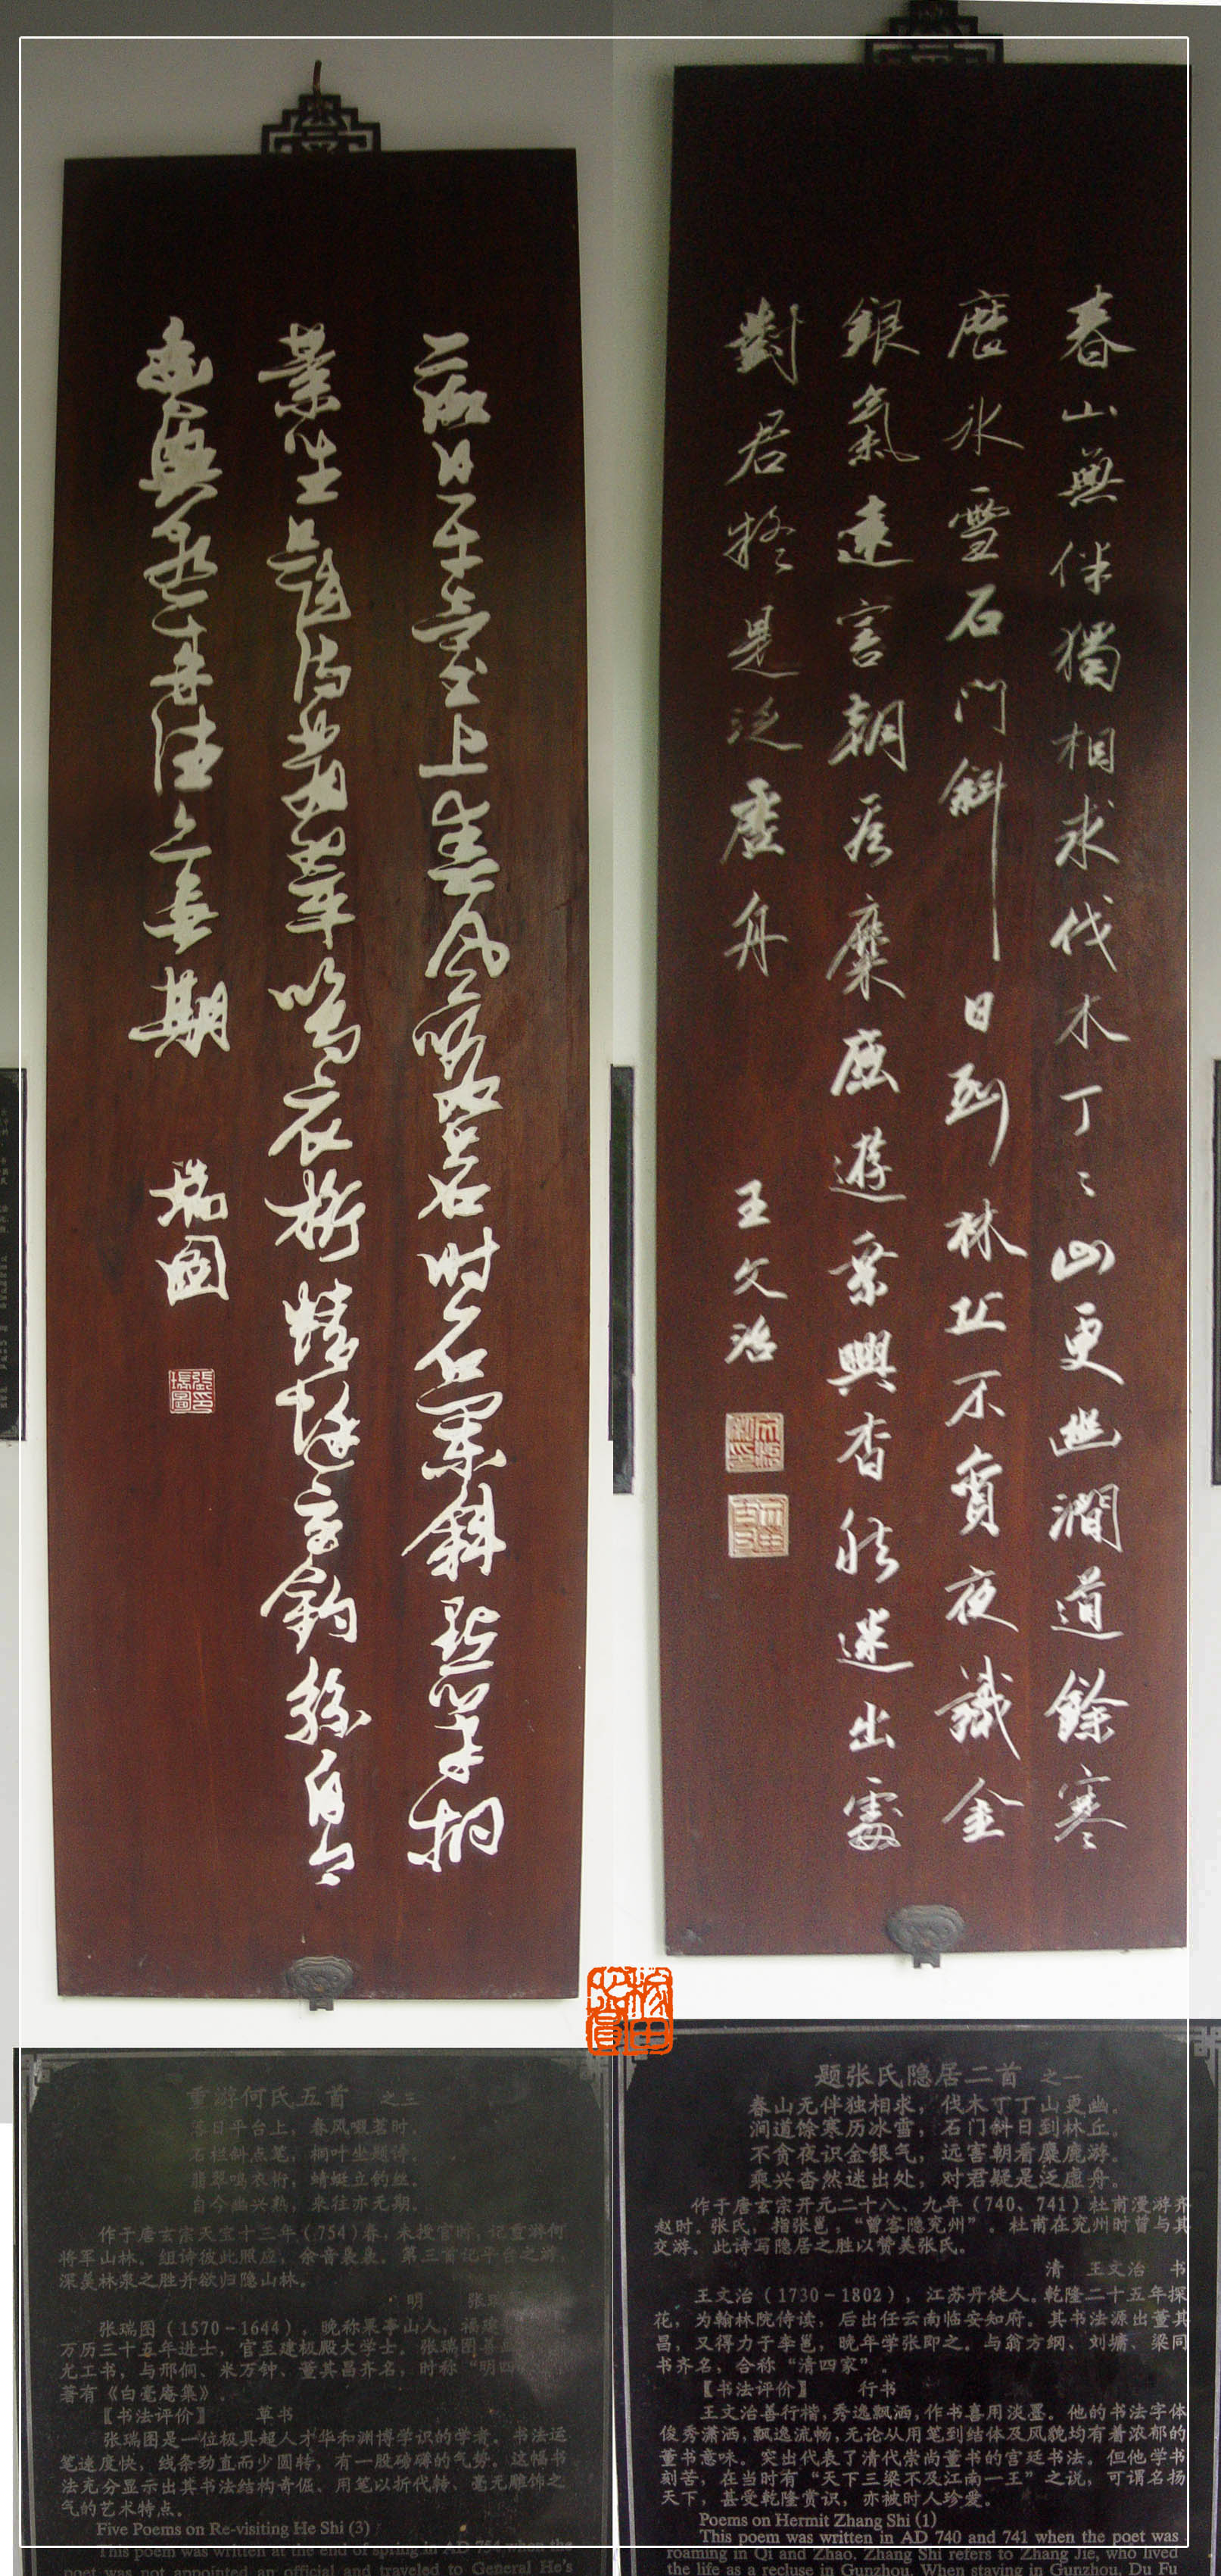 春山無伴獨相求伐木丁々山更幽澗道餘寒
歷氷雪石門斜日到林丘不貪夜識金
銀氣遠害朝看麋鹿遊乘興杳然迷出處
對君疑是泛虛舟
王文治
落日平臺上春風啜茗時石闌斜點筆桐
葉坐題詩翡翠鳴衣桁蜻蜓立釣絲自今
幽興熟來往亦無期
瑞圖
重游何氏五首 之三
落日平台上，春风啜茗时。
石栏斜点笔，桐叶坐题诗。
翡翠鸣衣桁，蜻蜓立钓丝。
自今幽兴熟，来往亦无期。
作于唐玄宗天宝十三年（754）春，未授官时，记重游何
将军山林。组诗彼此照应，余音袅袅。第三首记平台之游，
深羡林泉之胜并欲归隐山林。
明 张瑞
张瑞图（1570-1644），晚称果亭山人，福建
万历三十五年进士，官至建极殿大学士。张瑞图善
尤工书，与邢侗、米万钟、董其昌齐名，时称“明四
著有《白毫庵集》。
【书法评价】 草书
张瑞图是一位极具超人才华和渊博学识的学者。书法运
笔速度快，线条劲直而少圆转，有一股磅礴的气势。这幅书
法充分显示出其书法结构奇倔、用笔以折代转、毫无雕饰之
气的艺术特点。
Five Poems on Re-visiting He Shi (3)
This poem was written at the end of spring in AD 754 when the
poet was not appointed an official and traveled to General He's
题张氏隐居二首 之一
春山无伴独相求，伐木丁丁山更幽。
涧道馀寒历冰雪，石门斜日到林丘。
不贪夜识金银气，远害朝看麋鹿游。
乘兴杳然迷出处，对君疑是泛虚舟。
作于唐玄宗开元二十八、九年（740、741）杜甫漫游齐
赵时。张氏，指张邕，“曾客隐兖州”。杜甫在兖州时曾与其
交游。此诗写隐居之胜以赞美张氏。
清 王文治 书
王文治（1730-1802），江苏丹徒人。乾隆二十五年探
花，为翰林院侍读，后出任云南临安知府。其书法源出董其
昌，又得力于李邕，晚年学张即之。与翁方纲、刘墉、梁同
书齐名，合称“清四家”。
【书法评价】 行书
王文治善行楷，秀逸飘洒，作书喜用淡墨。他的书法字体
俊秀潇洒，飘逸流畅，无论从用笔到结体及风貌均有着浓郁的
董书意味。突出代表了清代崇尚董书的宫廷书法。但他学书
刻苦，在当时有“天下三梁不及江南一王”之说，可谓名扬
天下，甚受乾隆赏识，亦被时人珍爱。
Poems on Hermit Zhang Shi (1)
This poem was written in AD 740 and 741 when the poet was
roaming in Qi and Zhao. Zhang Shi refers to Zhang Jie, who lived
the life as a recluse in Gunzhou. When staying in Gunzhou, Du Fu